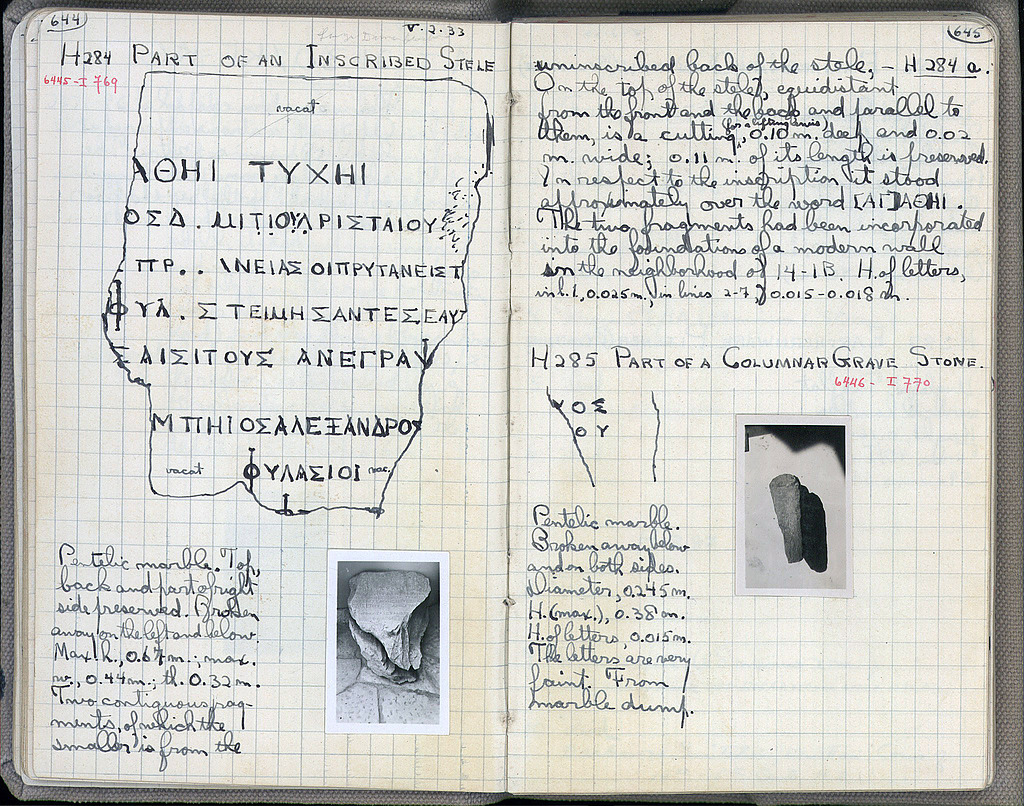 644
V·2·33
H284 PART OF AN INSCRIBED STELE
6445-I 769
vacat
ΑΘΗΙ ΤΥΧΗΙ
ΟΣΔ . ΜΙΤΙΟΥΑΡΙΣΤΑΙΟΥ
ΠΡ . . \ΝΕΙΑΣ ΟΙΠΡΥΤΑΝΕΙΣΤ
ΦΥΛ . Σ ΤΕΙΜΗΣΑΝΤΕΣΕΑΥ
ΣΑΙΣΙΤΟΥΣ ΑΝΕΓΡΑΨ
ΜΠΗΙΟΣΑΛΕΞΑΝΔΡΟΣ
vacat ΦΥΛΑΣΙΟΙ vac.
Pentelic marble. Top,
back and part of right
side preserved. Broken
away on the left and below.
Max. h., 0.67 m.; max.
w., 0.44 m.; th. 0.32 m.
Two contiguous frag-
ments, of which the
smaller is from the
645
uninscribed back of the stele, – H 284 a.
On the top of the stele, equidistant
from the front and the back and parallel to
them, is a cutting (for a lifting lewis), 0.10 m. deep and 0.02
m. wide; 0.11 m. of its length is preserved.
In respect to the inscription it stood
approximately over the word [ΑΓ]ΑΘΗΙ.
The two fragments had been incorporated
into the foundations of a modern wall
in the neighborhood of 14-1B. H. of letters,
in l. 1, 0.025 m., in lines 2-7, 0.015-0.018 m.
H285 PART OF A COLUMNAR GRAVE STONE.
6446- I 770
ΥΟΣ
ΟΥ
Pentelic marble.
Broken away below
and on both sides.
Diameter, 0.245 m.
H. (max.), 0.38 m.
H. of letters, 0.015 m.
The letters are very
faint. From
marble dump.